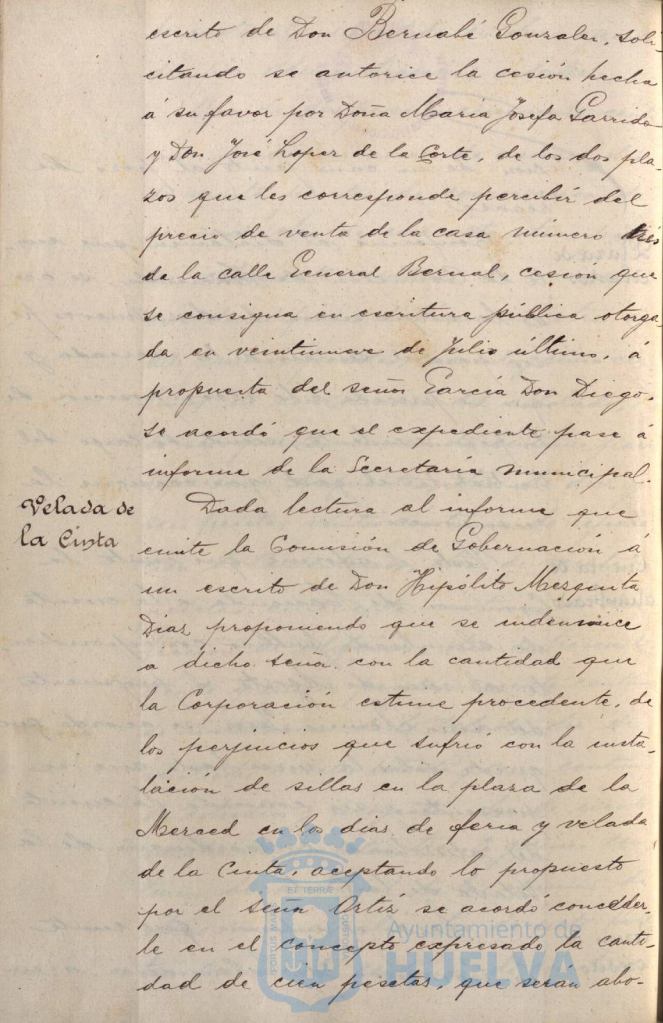 escrito de Don Bernabé Gonzalez, soli-
citando se autorice la cesión hecha
á su favor por Doña María Josefa Garrido
y Don José Lopez de la Corte, de los dos pla-
zos que les corresponde percibir del
precio de venta de la casa número trés
de la calle General Bernal, cesión que
se consigna en escritura pública otorga-
da en veintinueve de Julio último, á
propuesta del señor García Don Diego,
se acordó que el expediente pase á
informe de la Secretaría municipal.
Velada de
la Cinta
Dada lectura al informe que
emite la Comisión de Gobernación á
un escrito de Don Hipólito Mezquita
Diaz proponiendo que se indemnice
á dicho señor con la cantidad que
la Corporación estime procedente, de
los perjuicios que sufrió con la insta-
lación de sillas en la plaza de la
Merced en los dias de feria y velada
de la Cinta, aceptando lo propuesto
por el señor Ortíz se acordó conceder-
le en el concepto expresado la canti-
dad de cien pesetas, que serán abo-
Ayuntamiento de
HUELVA